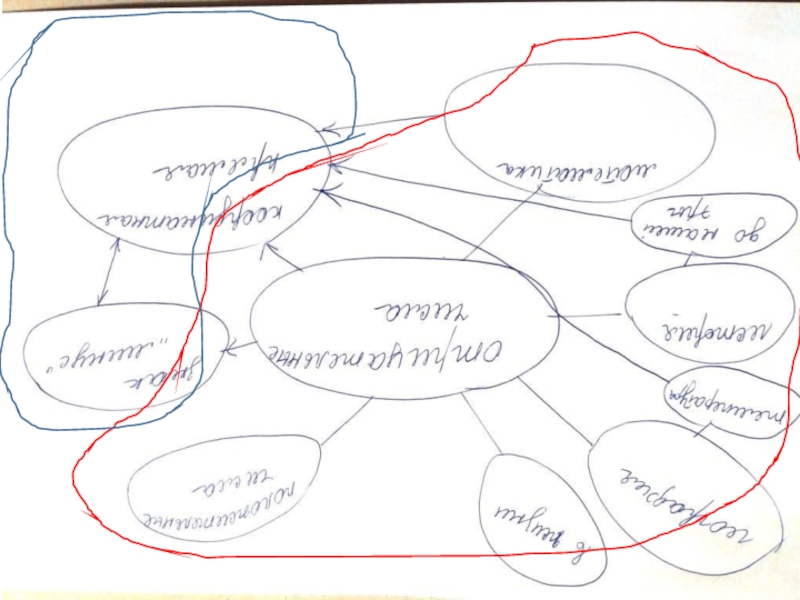 география
в жизни
положительные
числа
температура
отрицательные
числа
знак
„минус"
история
до нашей
эры
математика
координатная
прямая